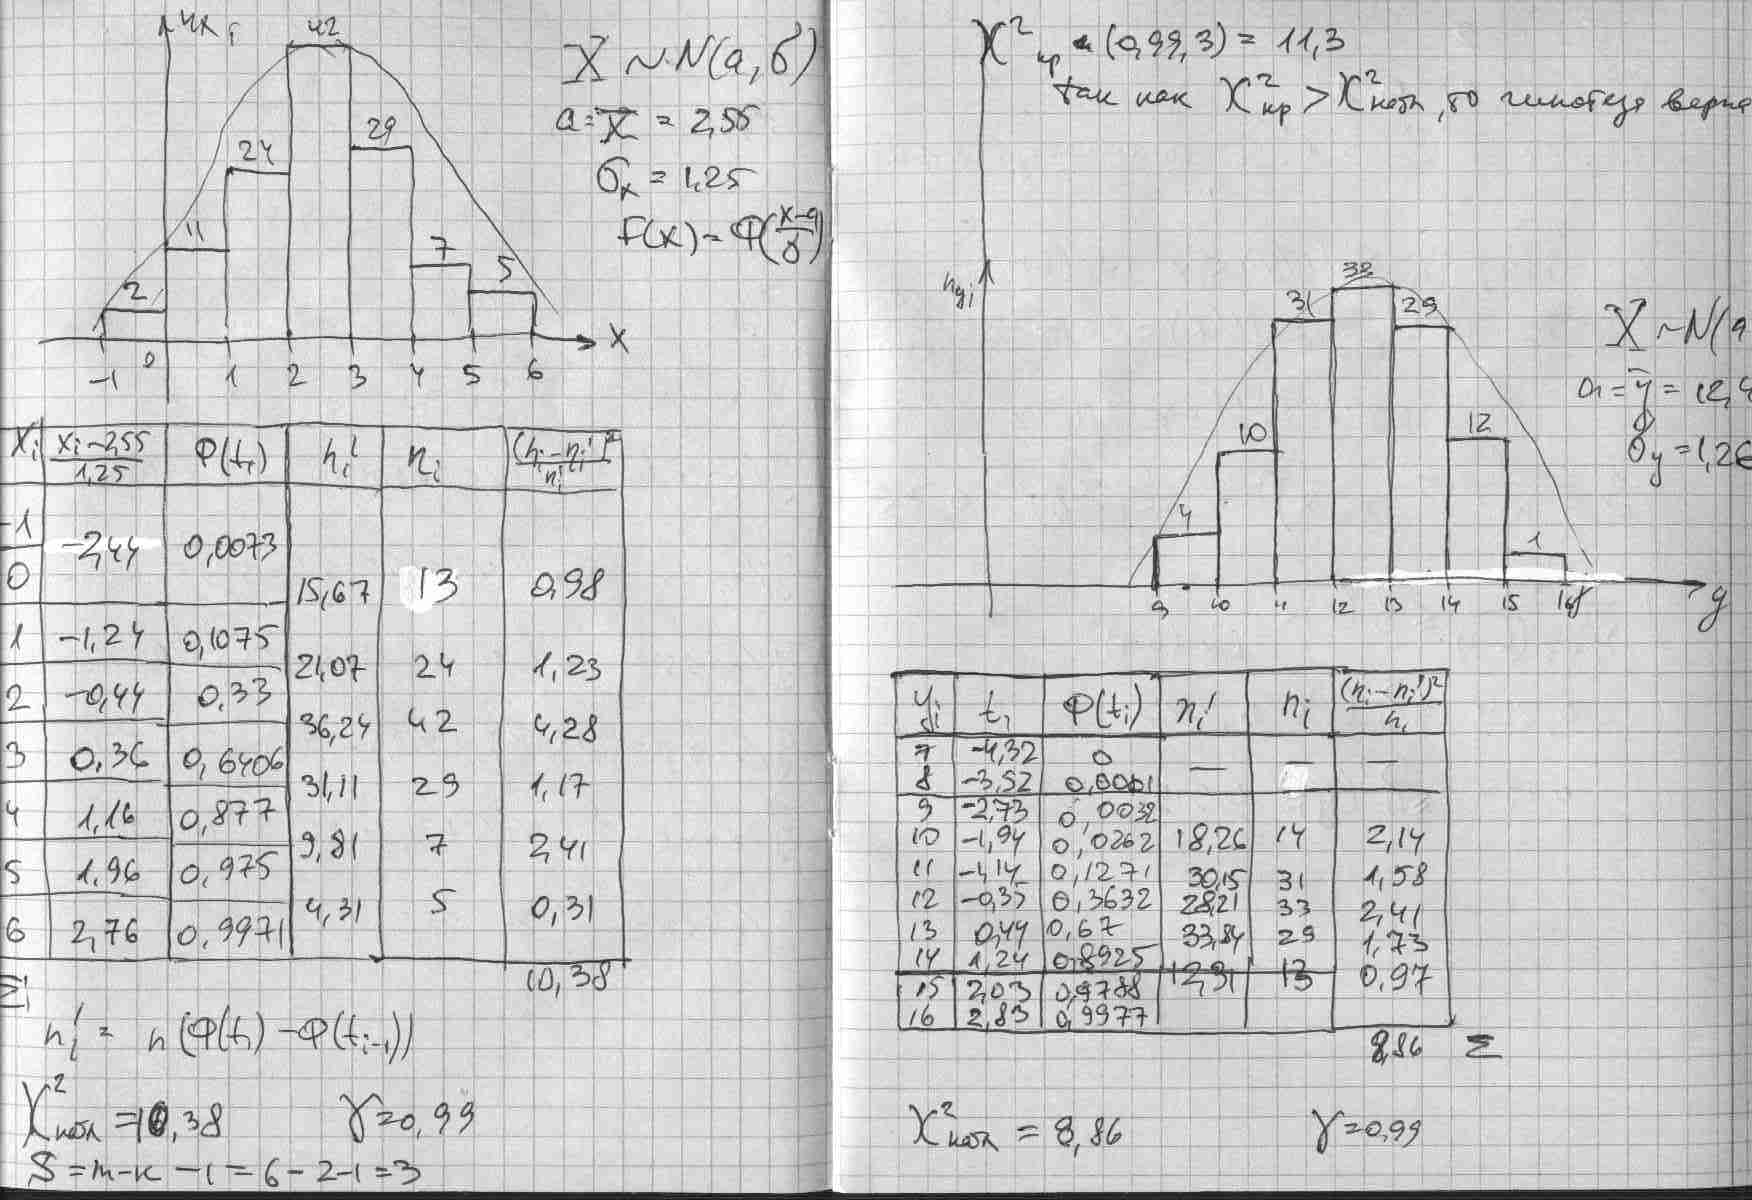 42
X ~ N(a, σ)
a = x̄ = 2,55
29
24
σₓ = 1,25
F(x) = Φ((x-a)/σ)
11
7
5
2
x
-1 0 1 2 3 4 5 6
xᵢ (xᵢ-2,55)/1,25 Φ(tᵢ) nᵢ' nᵢ (nᵢ-nᵢ')²/nᵢ'
-1
-2,44 0,0073
0
15,67 13 0,98
1 -1,24 0,1075
21,07 24 1,23
2 -0,44 0,33
36,24 42 4,28
3 0,36 0,6406
31,11 29 1,17
4 1,16 0,877
9,81 7 2,41
5 1,96 0,975
4,31 5 0,31
6 2,76 0,9971
Σ 10,38
nᵢ' = n(Φ(tᵢ) - Φ(tᵢ₋₁))
χ²набл = 10,38 γ = 0,99
S = m-к-1 = 6-2-1 = 3
χ²кр (0,99, 3) = 11,3
так как χ²кр > χ²набл, то гипотеза верна
nyᵢ
31
29
X ~ N(a
a = ȳ = 12,4
σy = 1,26
12
10
4
1
9 10 11 12 13 14 15 16 y
yᵢ tᵢ Φ(tᵢ) nᵢ' nᵢ (nᵢ-nᵢ')²/nᵢ
7 -4,32 0
— — —
8 -3,52 0,0001
9 -2,73 0,0032
10 -1,94 0,0262 18,26 14 2,14
11 -1,14 0,1271 30,15 31 1,58
12 -0,35 0,3632 28,21 33 2,41
13 0,44 0,67 33,84 29 1,73
14 1,24 0,8925 12,31 13 0,97
15 2,03 0,9788
16 2,83 0,9977
8,86 Σ
χ²набл = 8,86 γ = 0,99